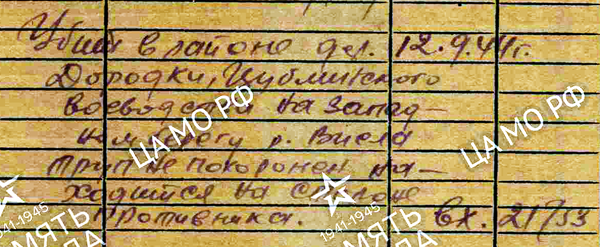 Убит в районе дер. 12.9.44г.
Дородки, Цублинского
воеводства на запад-
ном берегу р. Висла
труп не похоронен на-
ходится на стороне
противника. вх. 21753
ЦА МО РФ
ЦА МО РФ
1941-1945
1941-1945
ПАМЯТЬ